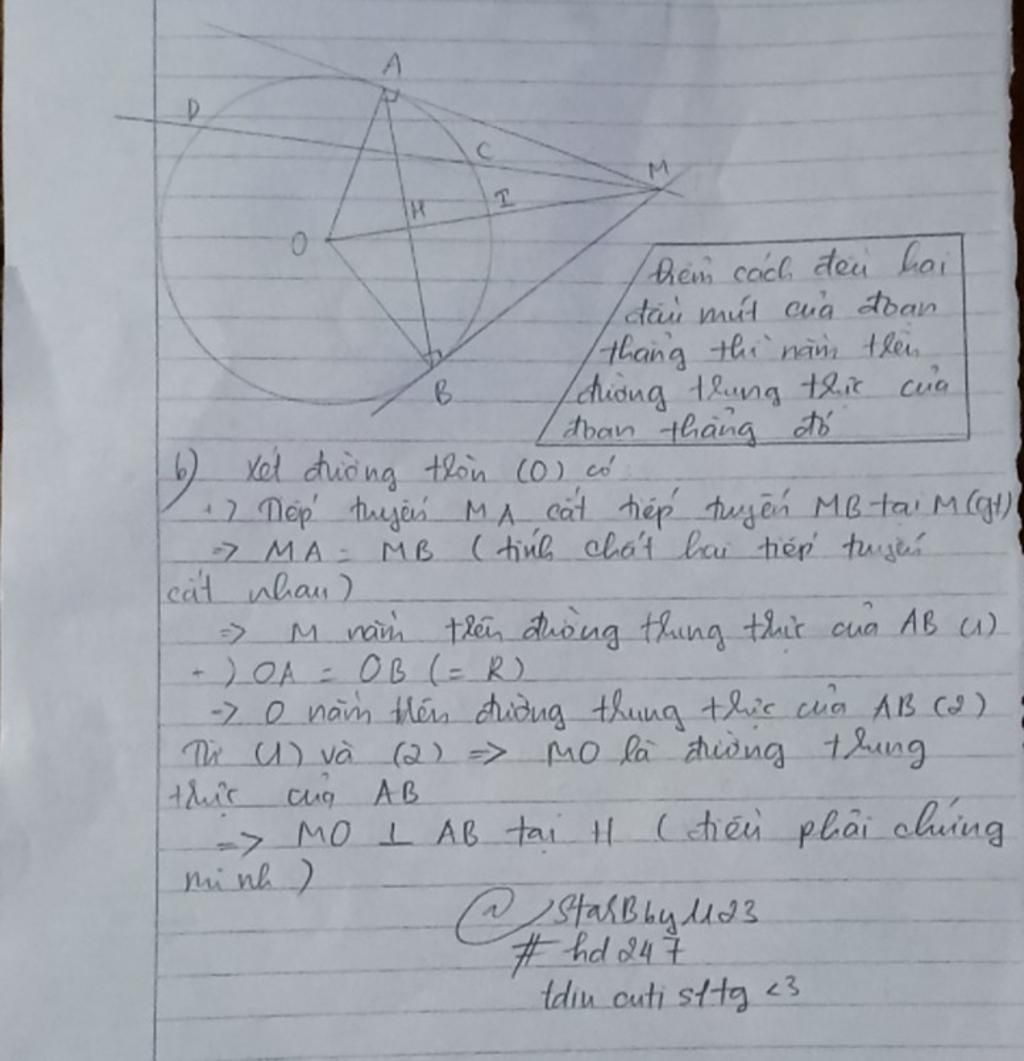 A
D
C
M
H
I
O
B
Điểm cách đều hai
đầu mút của đoạn
thẳng thì nằm trên
đường trung trực của
đoạn thẳng đó
b) Xét đường tròn (O) có
+) Tiếp tuyến MA cắt tiếp tuyến MB tại M (gt)
=> MA = MB (tính chất hai tiếp tuyến
cắt nhau)
=> M nằm trên đường trung trực của AB (1)
+) OA = OB (= R)
-> O nằm trên đường trung trực của AB (2)
Từ (1) và (2) => MO là đường trung
trực của AB
=> MO ⊥ AB tại H (điều phải chứng
minh)
@StarBby1123
# hd247
tdiu cuti sttg <3